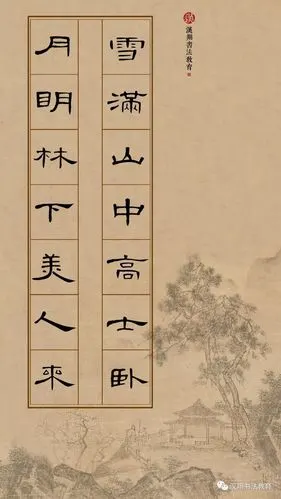 雪滿山中高士卧
月明林下美人來
漢翔書法教育
汉翔书法教育